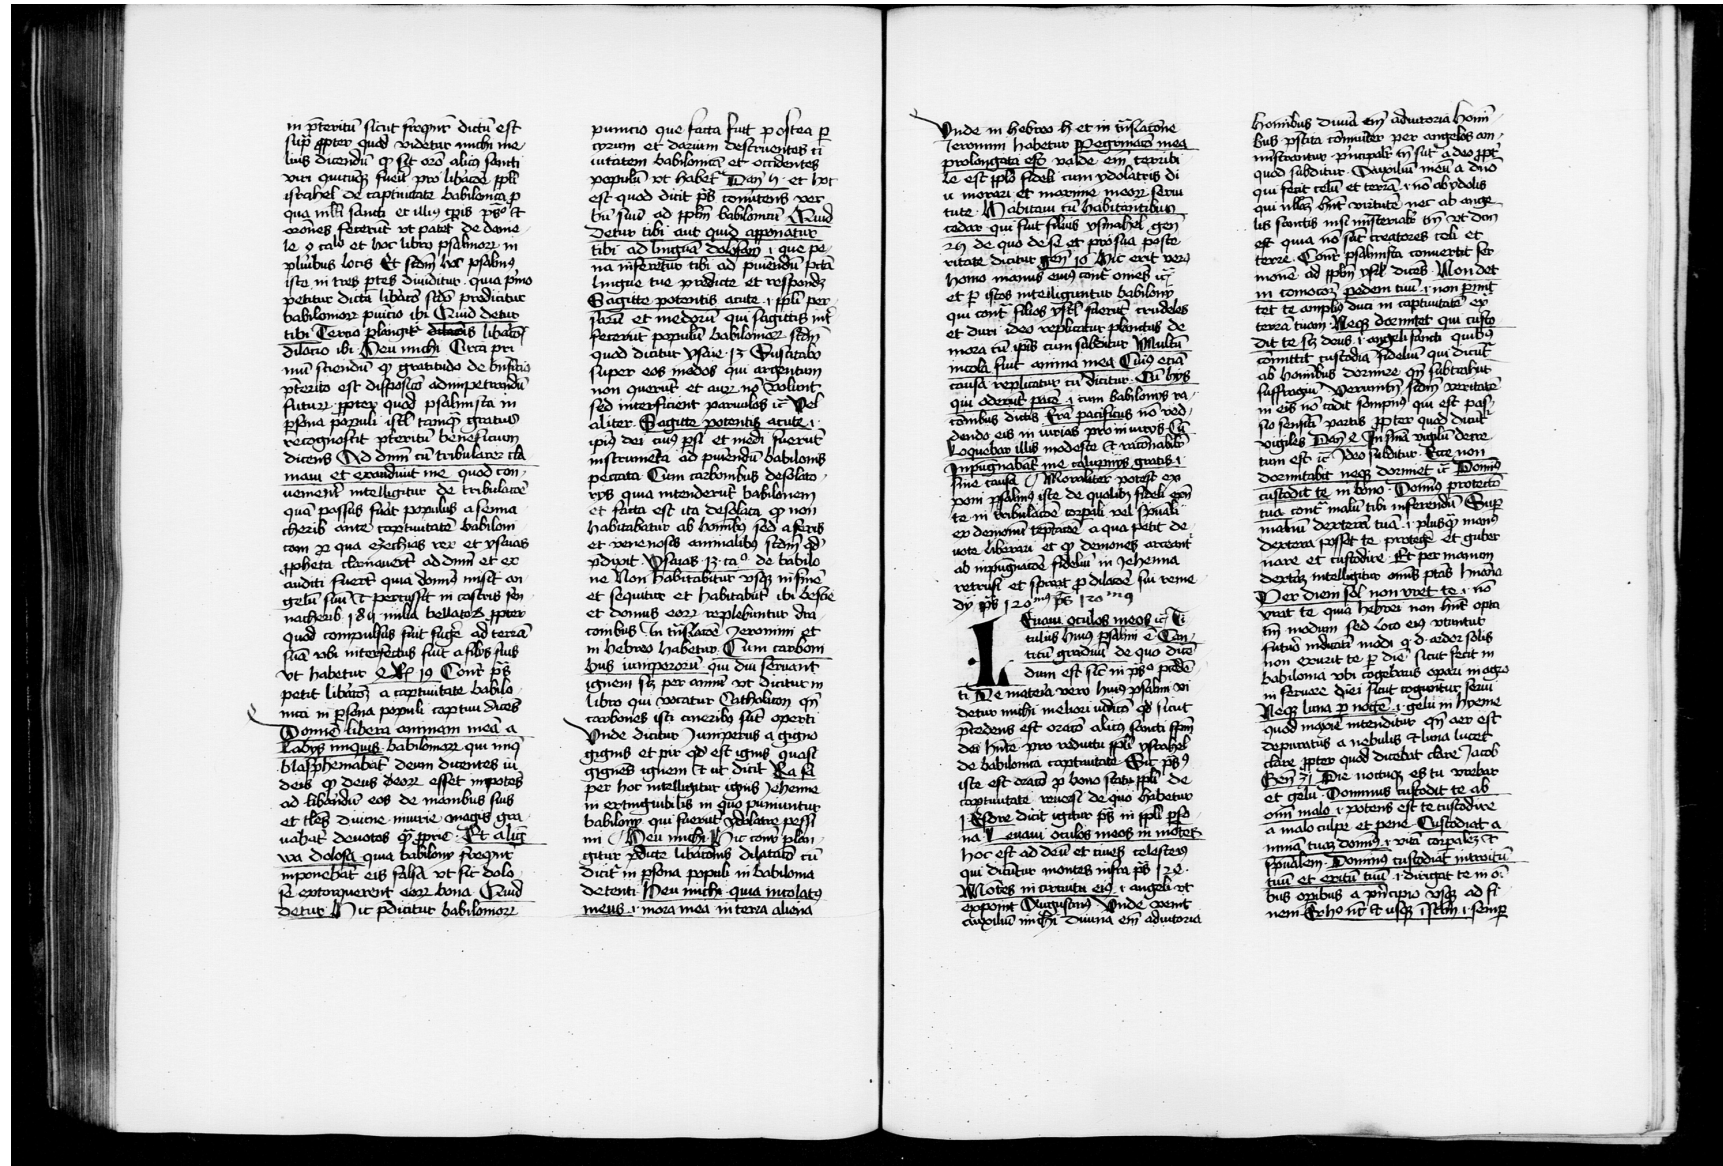 in p̄teritū sicut freqn̄t dictū est
sup̄ ꝓpter quod videtur michi me
lius dicendū ꝙ sit orō alicꝰ sancti
viri quicūqꝫ fuerit pro libācōe ppl̄i
israhel de captiuitate babilonica p̄
qua ml̄ti sancti et illiꝰ tp̄ris
orōnes fecerūt vt patet de danie
le 9 cao et hoc libro psalmorꝝ in
pluribus locis Et scd̄m hoc psalmꝰ
iste in tres p̄tes diuiditur quia p̄mo
petitur dicta libācō scd̄o predicitur
babilonorꝝ pūicio ibi Quid detur
tibi Tercio plangit᷑ libācōis
dilacio ibi Heu michi Circa pri
mū sciendū ꝙ gratitudo de bn̄ficio
p̄terito est disposicō ad impetrandū
futurꝝ ꝓpter quod psalmista in
p̄sona populi isrl̄ tamqꝫ gratus
recognoscit p̄teritū beneficium
dicens Ad dn̄m cū tribularer cla
maui et exaudiuit me quod con
uenient᷑ intelligitur de tribulacōe
quā passus fuit populus a senna
cherib ante captiuitatē babiloni
cam ꝓ qua ezechias rex et ysaias
ꝓpheta clamauerūt ad dn̄m et ex
auditi fuerūt quia domīnꝰ misit an
gelū suū et percussit in castris sen
nacherib 185 milia bellatorꝝ ꝓpter
quod compulsus fuit fuge᷑ ad terrā
suā vbi interfectus fuit a filijs suis
vt habetur 19 Cont᷑ p̄s
petit libācōeꝫ a captiuitate babilo
nica in p̄sona populi captiui dicēs
Domīe libera animam meā a
labijs iniquis babilonorꝝ qui iniq̄
blasphemabāt deum dicentes iu
deis ꝙ deus eorꝝ esset impotēs
ad libandū eos de manibus suis
et tales diuine iniurie magis gra
uabāt deuotos qꝫ ꝓprie Et a lin̄
gua dolosa qua babilonij freqn̄t᷑
imponebāt eis falsa vt sic dolo
se extorquerent eorꝝ bona Quid
detur Hic p̄dicitur babilonorꝝ
punicio que facta fuit postea p̄
cyrum et darium destruentes ci
uitatem babilonicā et occidentes
populū vt habet᷑ Dan 5 et hoc
est quod dicit p̄s conūtens ver
bū suū ad ppl̄m babilonicū Quid
detur tibi aut quid apponatur
tibi ad linguā dolosam i que pe
na inferetur tibi ad puniendū pctā
lingue tue predicte et respondꝫ
Sagitte potentis acute i ppl̄i per
sarū et medorū qui sagittis int᷑
fecerūt populū babilonorꝝ scd̄m
quod dicitur ysaie 13 Suscitabo
super eos medos qui argentum
non querūt et aurꝝ nō volunt
sed interficient paruulos ic̄ Vel
aliter Sagitte potentis acute i
ipiꝰ dei cuiꝰ p̄si et medi fuerūt
instrumēta ad puniendū babilonis
peccata Cum carbonibus desolato
rijs quia incenderūt babilonem
et facta est ita desolata ꝙ non
habitabatur ab hominibꝰ sed a feris
et venenosis animalibꝰ scd̄m qd̄
p̄dixit ysaias 13 cao de babilo
ne Non habitabitur vsqꝫ in finē
et sequitur et habitabūt ibi bestie
et domus eorꝝ replebuntur dra
conibus In trāslacōe Jeronimi et
in hebreo habetur Cum carboni
bus iuniperorū qui diu seruant
ignem scꝫ per annū vt dicitur in
libro qui vocatur Catholicon qn̄
carbones isti cineribꝰ sūt operti
Vnde dicitur Juniperus a gigno
gignis et pir qd̄ est ignis quasi
gignēs ignem et ut dicit Ra sa
per hoc intelligitur ignis Jehenne
in extinguibilis in quo puniuntur
babilonij qui fuerūt ydolatre pessi
mi Heu michi Hic conr̄ plan
gitur p̄dicte libacōnis dilatacō cū
dicit᷑ in p̄sona populi in babilonia
detenti Heu michi quia incolatꝰ
meus i mora mea in terra aliena
Vnde in hebreo h̄ et in trāslacōne
Jeronimi habetur Peregrinacō mea
prolongata est valde enī terribi
le est pplo fideli cum ydolatris di
u morari et maxime in eorꝝ serui
tute Habitaui cū habitantibus
cedar qui fuit filius ysmahel gen
25 de quo de se et pro sua poste
ritate dicitur gen̄ 16 Hic erit verꝰ
homo manus eius cont᷑ omēs ic̄
et p̄ istos intelliguntur babilonij
qui cont᷑ filios ysrl̄ fuerūt crudeles
et duri ideo replicatur planctus de
mora cū ipīs cum subditur Multū
incola fuit anima mea Cuiꝰ etiā
causa replicatur cū dicitur Cū hijs
qui oderūt pacē i cum babilonijs ra
cōnibus dictis Erā pacificus nō red
dendo eis iniurias pro iniurijs Cū
loquebar illis modeste et racōnabilit᷑
Inpugnabāt me calūpnijs gratis i
sine causa Moraliter potest ex
poni psalmus iste de quolibꝫ fideli exn̄
te in tribulacōe corpali vel spūali
ex demonū temptacōe a qua petit de
uote liberari et ꝙ demones arceant᷑
ab inpugnacōe fideliū in Jehenna
retrusi et plangit p̄ dilacōe sui reme
dij p̄s 120mus p̄s 120mus
Leuaui oculos meos ic̄ Ti
tulus huiꝰ psalmi ē Can
ticū graduū de quo dicē
dum est sicut in p̄s° p̄cedē
ti De materia vero huiꝰ psalmi vi
detur michi meliori iudicō qd̄ sicut
p̄cedens est oracō alicꝰ sancti spm̄
dei hn̄tē pro reditu ppl̄i ysrahel
de babilonica captiuitate Sic p̄sꝰ
iste est oracō p̄ bono statu ppl̄i de
captiuitate reuersi de quo habetur
1 Esdre dicit igitur p̄s in ppl̄i p̄so
na Leuaui oculos meos in mōtes
hoc est ad deū et ciues celestes
qui dicūtur montes infra p̄s 124
Mōtes in circuitu eiꝰ i angeli vt
exponit Augustinꝰ Vnde veniet
auxiliū michi diuina enī adiutoria
hominibus diuīa enī adiutoria homī
bus p̄stita cōmuīter per angelos am
inistrantur p̄ncipalit᷑ tn̄ sūt a deo ꝓpt᷑
quod subditur Auxiliū meū a dn̄o
qui fecit celū et terrā i nō ab ydolis
qui nullā hn̄t virtutē nec ab ange
lis sanctis nisi misterialit᷑ tn̄ vt dcm̄
est quia nō sūt creatores celi et
terre Cont᷑ psalmista conuertit ser
monē ad ppl̄m ysrl̄ dicēs Non det
in comocōeꝫ pedem tuū i non p̄mit
tet te ampliꝰ duci in captiuitatē ex
terrā tuam Neqꝫ dormitet qui custo
dit te scꝫ deus i angeli sancti quibꝰ
cōmittit custodiā fideliū qui dicūt᷑
ab hominibus dormire qn̄ subtrahūt
suffragiū Verumtn̄ scd̄m veritatē
in eis nō cadit sompnꝰ qui est pas
sio sensitiē partis ꝓpter quod dicūt᷑
vigiles Dan̄ 4 In sn̄iā vigilū decre
tum est ic̄ Ideo subditur Ecce non
dormitabit neqꝫ dormiet ic̄ Domīnꝰ
custodit te in bono Domīnꝰ protectō
tua cont᷑ malū tibi inferendū Sup̄
manū dexterā tuā i plusqꝫ manꝰ
dextera posset te protege᷑ et guber
nare et custodire Et per manum
dexterā intelligitur omīs ptās hūana
Per diem sol non vret te i nō
vrat te quia hebrei non hn̄t opta
tiuū modum sed loco eiꝰ vtuntur
futuro indicatiui modi ꝙ d̄ ardor solis
non exurit te p̄ diē sicut fecit in
babilonia vbi cogebaris opari in agro
in feruore diei sicut coguntur serui
Neqꝫ luna p̄ noctē i gelu in hyeme
quod maxīe intenditur qn̄ aer est
depuratus a nebulis et luna lucet
clare ꝓpter quod dicebat clare Jacob
Gen̄ 31 Die noctuqꝫ estu vrebar
et gelu Dominus custodit te ab
omī malo i potens est te custodire
a malo culpe et pene Custodiat a
nimā tuaꝫ domīnꝰ i vitā corpaleꝫ et
spūalem Dominus custodiat introitū
tuū et exitū tuū i dirigat te in oī
bus opibus a p̄ncipio vsqꝫ ad fi
nem Ex hoc nūc et usqꝫ i sclm̄ i semp̄